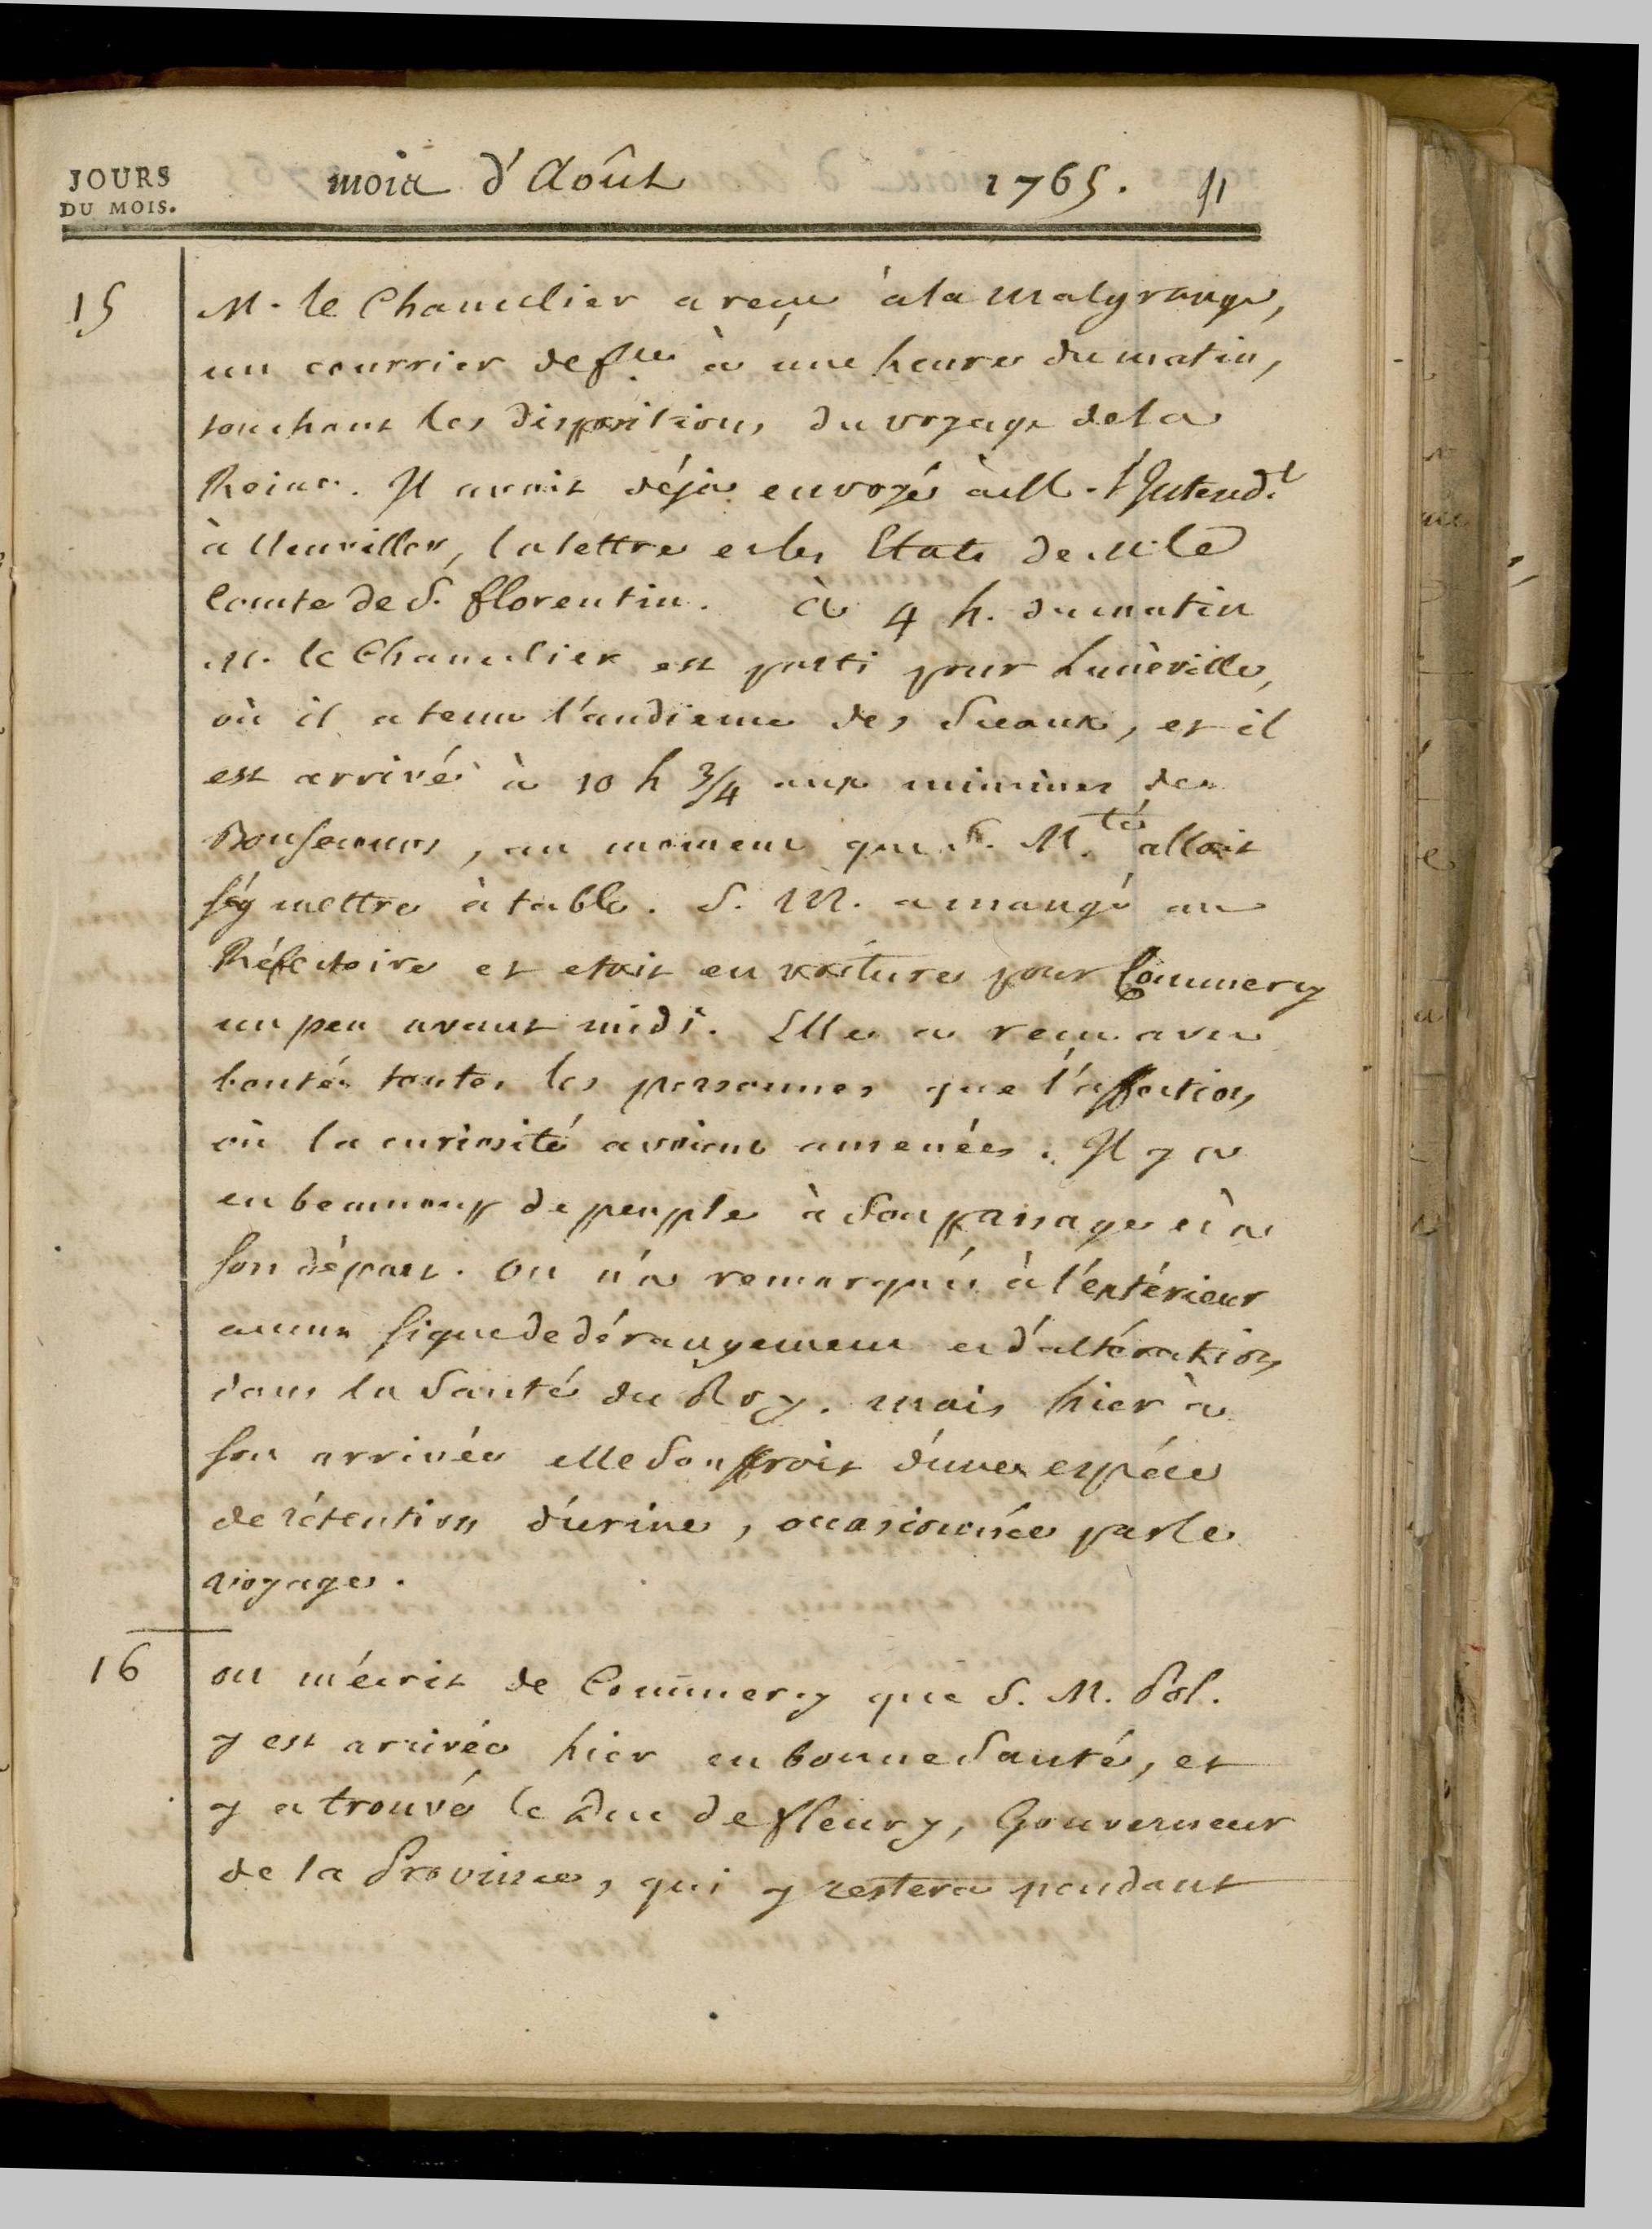 JOURS
DU MOIS.
mois d'Août 1765. 51
15
M. le Chancelier a reçu à la Malgrange,
un courrier de fce à une heure du matin,
touchant les dispositions du voyage de la
Reine. Il avoit déja envoyé à M. l'Intend.t
à Neuviller, la lettre et les Etats de M. le
Comte de S. florentin. à 4 h. du matin
M. le Chancelier est parti pour Lunéville,
où il a tenu l'audience des Sceaux, et il
est arrivé à 10 h 3/4 aux minimes de
Bonsecours, au moment que S. M.té alloit
s'y mettre à table. S. M. a mangé au
Réfectoire et etoit en voiture pour Commercy
un peu avant midi. Elle a reçu avec
bonté toutes les personnes que l'affection
où la curiosité avoient amenées. Il y a
eu beaucoup de peuple à son passage et à
son départ. On n'a remarqué à l'extérieur
aucun signe de dérangement et d'altération
dans la Santé du Roy. mais hier à
son arrivée elle Souffroit d'une espéce
de rétention d'urine, occasionnée par le
voyage.
16
on m'écrit de Commercy que S. M. Pol.
y est arrivée hier en bonne Santé, et
y a trouvé le Duc de fleury, Gouverneur
de la Province, qui y restera pendant